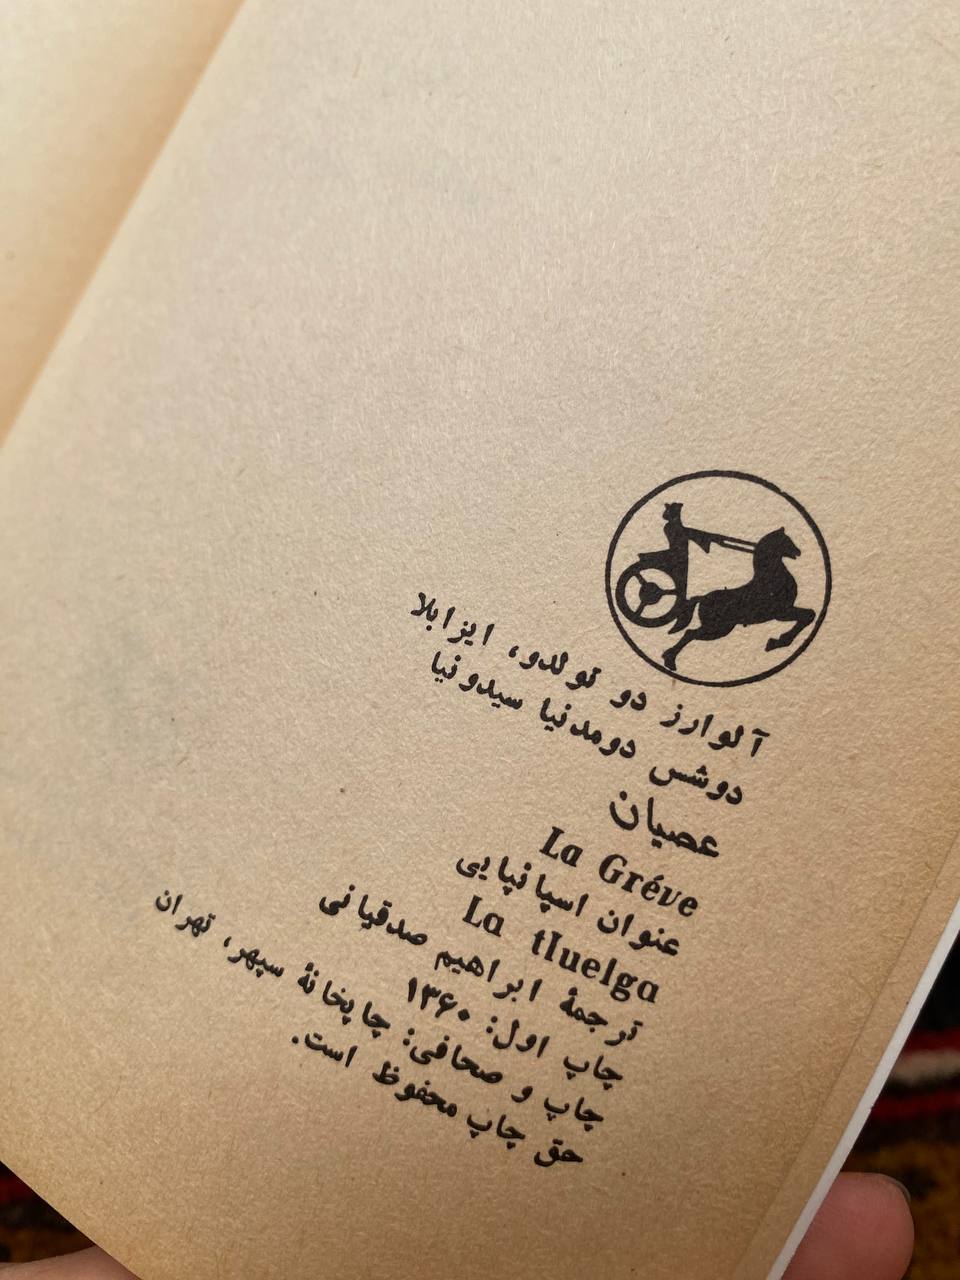 آلوارز دو تولدو، ایزابلا
دوشس دومدنیا سیدونیا
عصیان
La Gréve
عنوان اسپانپایی
La tluelga
ترجمهٔ ابراهیم صدقیانی
چاپ اول: ۱۳۶۰
چاپ و صحافی: چاپخانهٔ سپهر، تهران
حق چاپ محفوظ است.